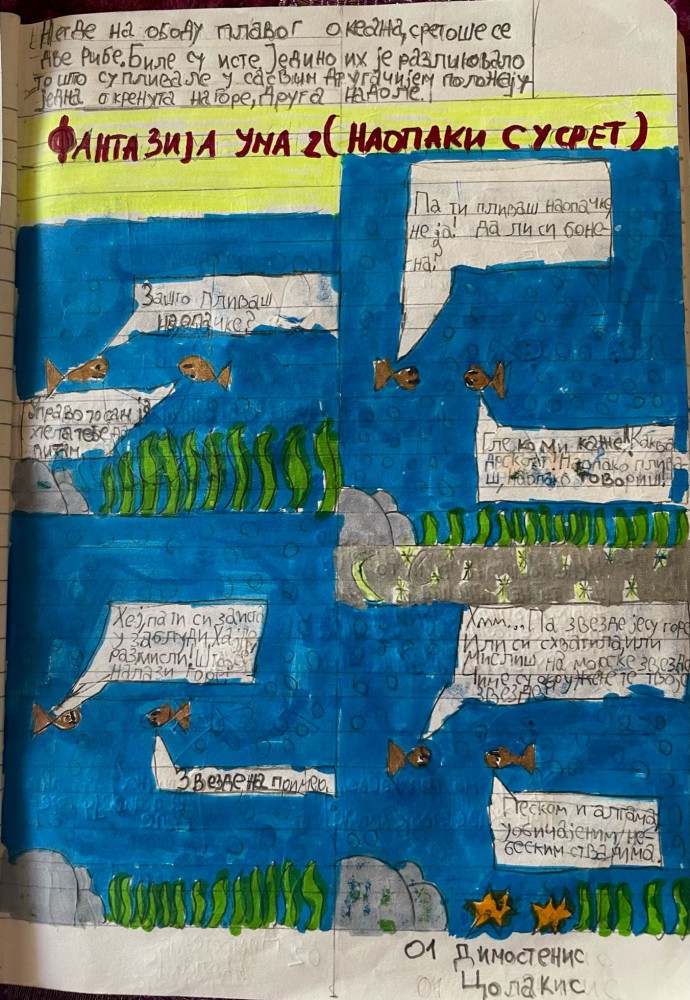 Негде на ободу плавог океана, сретоше се
две рибе. Биле су исте једино их је разликовало
то што су пливале у сасвим другачијем положају
једна окренута на горе, друга надоле.
ФАНТАЗИЈА УМА 2 (НАОПАКИ СУСРЕТ)
Зашто пливаш
наопачке?
Управо то сам ја
хтела тебе да
питам
Па ти пливаш наопачке
не ја! Да ли си боне-
сна?
Гле ко ми каже!
наопако плива-
ш, наопако говориш!
Хеј, па ти си заиста
у заблуди. Хајде
размисли! Шта се
налази горе?
Звезде на пример.
Хмм... Па звезде јесу горе
Или си схватила, или
мислиш на морске звезде
Чиме су окружене те твоје
звезде?
Песком и алгама,
уобичајеним не-
беским стварима.
01 Димостенис
Цолакис